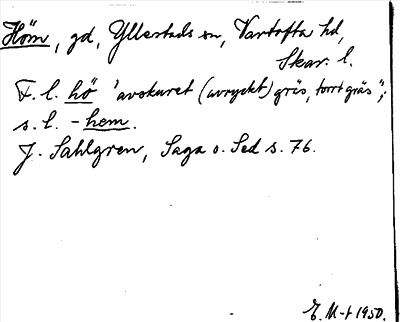 Höm, gd, Yllestads sn, Vartofta hd,
Skar. l.
F. l. hö 'avskuret (avryckt) gräs, torrt gräs';
s. l. -hem.
J. Sahlgren, Saga o. Sed s. 76.
E. M-t 1950.